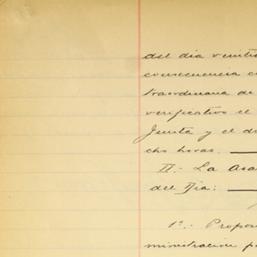 del dia veinti
consecuencia c
traordinaria de
verificativo el
Junta y el d
cho horas.
II.- La Asa
del Dia:
1º.- Propo
ministracion p